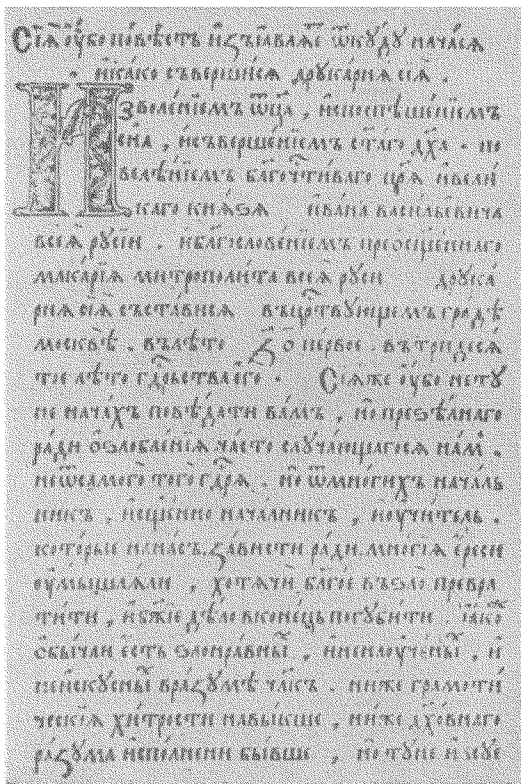 Сїѧ̀ ᲂу҆́бо по́вѣсть и҆з̾ꙗвлѧ́етъ ѿкꙋ́дꙋ нача́сѧ
и҆ка́ко съверши́сѧ дрꙋка́рнѧ сїѧ̀ .
Изволе́нїемъ ѿц҃а̀ , и҆поспѣше́нїемъ
сн҃а , и҆съверше́нїемъ ст҃а́го дх҃а . по
велѣ́нїемъ бл҃гоч҇ти́ваго цр҃ѧ̀ и҆вели́
каго кнѧ́ѕѧ и҆ва́на васи́льевича
всеѧ̀ рꙋсі́и . и҆бл҃гослове́нїемъ преосщ҃е́ннаго
мака́рїѧ митрополи́та всеѧ̀ рꙋсі́и дрꙋка́
рнѧ сїѧ̀ съста́висѧ въцр҇твꙋ́ющемъ гра́дѣ
москвѣ̀ . влѣ́то ҂з҃ о҃ пе́рвое . въ тридесѧ́
тое лѣ́то гд҇рьства є҆го̀ . Сїѧ́же ᲂу҆́бо не тꙋ́
не нача́хъ повѣ́дати ва́мъ , но̀ преѕѣ́лнаго
ра́ди ѻ҆ѕлобле́нїѧ ча́сто слꙋча́ющагосѧ на́мъ .
не ѿсамого̀ того̀ гд҇рѧ . но̀ ѿмно́гихъ нача́ль
никъ , и҆сщ҃е́нно нача́лникъ , и҆ᲂу҆чи́тель .
кото́рые на на́съ . за́висти ра́ди . мно́гїѧ є҆́реси
ᲂу҆мышлѧ́ли , хотѧ́чи бл҃го́е въ ѕло̀ превра
ти́ти , и҆ бж҃їе дѣ́ло вконе́цъ погꙋби́ти . ꙗ҆́коже
ѻ҆бы́чай є҆́сть ѕлонра́вныхъ , и҆ненаᲂу҆че́ныхъ , и҆
неискꙋ́сныхъ вра́зꙋмѣ чл҃къ . нижѐ грамоти́
ческїѧ хи́трости навы́кше , нижѐ дх҃о́внаго
ра́зꙋма и҆спо́лнени бы́вше , но̀ тꙋ́не и҆ всꙋ́е